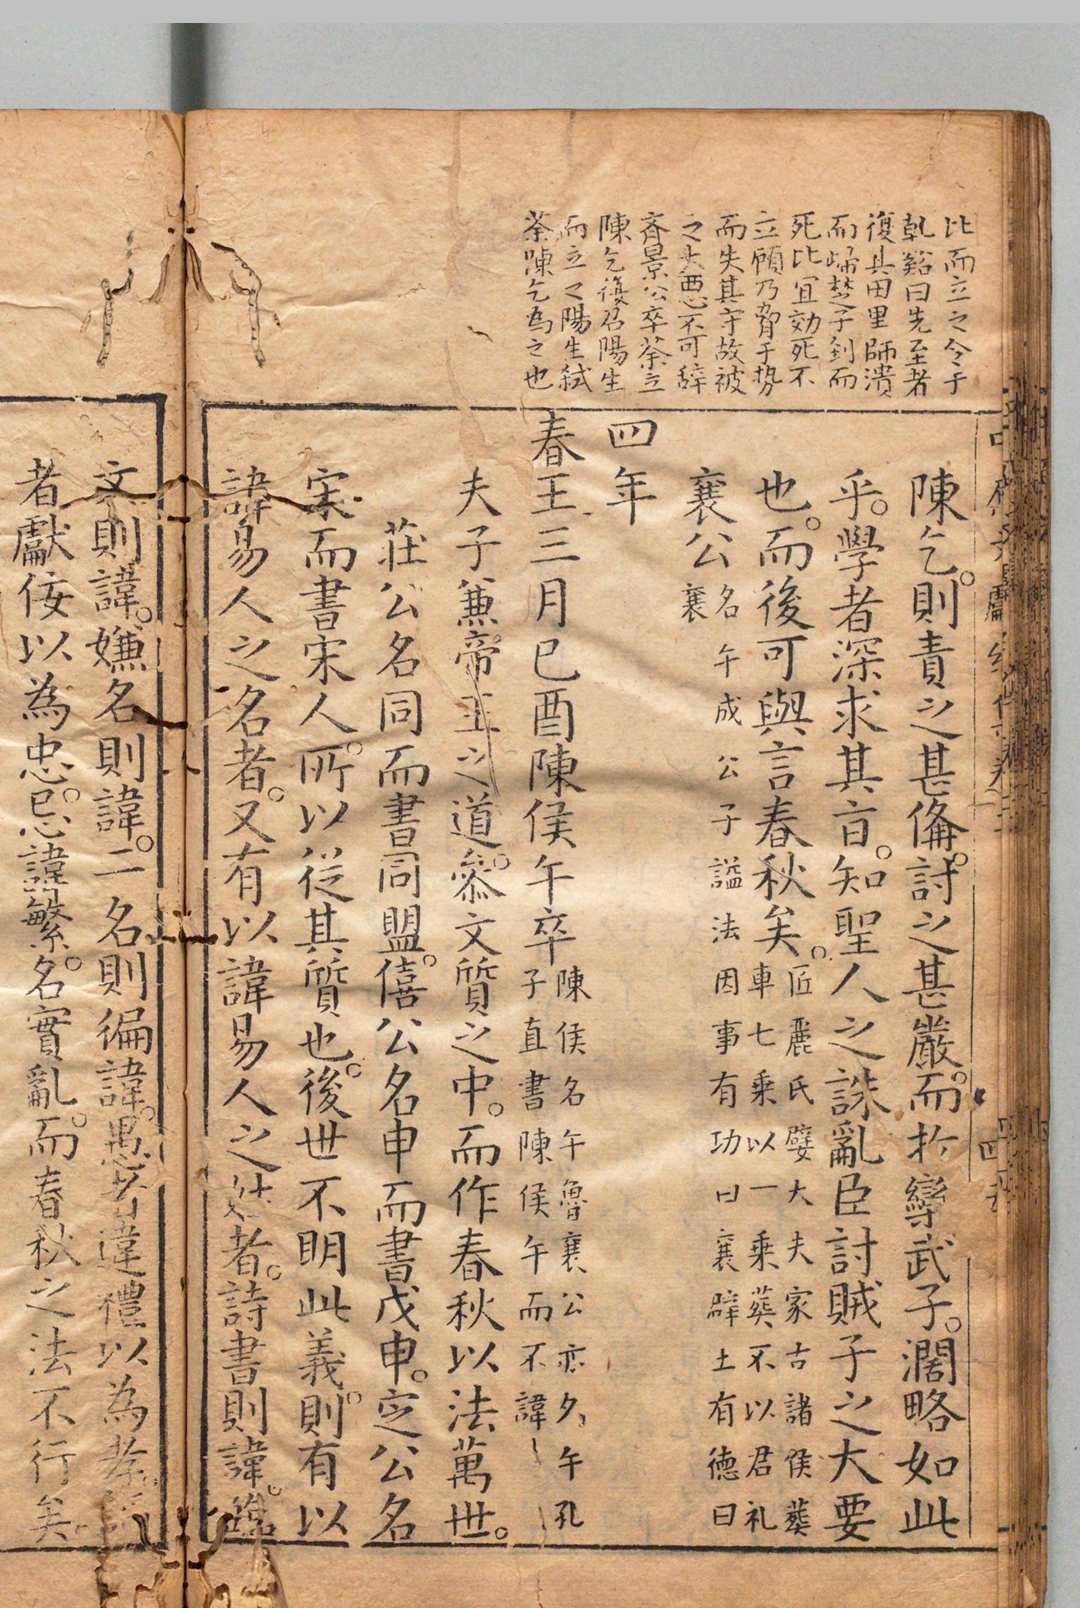 比而立之令于
乹谿曰先至者
復其田里師潰
而歸楚子到而
死比宜効死不
立顧乃脅于势
而失其守故被
之大惡不可辞
齊景公卒荼立
陳乞復召陽生
而立之陽生弑
荼陳乞為之也
陳乞則責之甚俻討之甚嚴而扵欒武子濶略如此
乎學者深求其㫖知聖人之誅亂臣討賊子之大要
也而後可與言春秋矣
匠麗氏嬖大夫家古諸侯葬
車七乘以一乘葬不以君礼
襄公
名午成公子謚法因事有功曰襄辟土有德曰
襄
四年
春王三月已酉陳侯午卒
陳侯名午魯襄公亦名午孔
子直書陳侯午而不諱
夫子兼帝王之道叅文質之中而作春秋以法萬世
莊公名同而書同盟僖公名申而書戊申定公名
宋而書宋人所以從其質也後世不明此義則有以
諱易人之名者又有以諱易人之姓者詩書則諱臨
文則諱嫌名則諱二名則徧諱愚者違禮以為孝
者獻佞以為忠忌諱繁名實亂而春秋之法不行矣